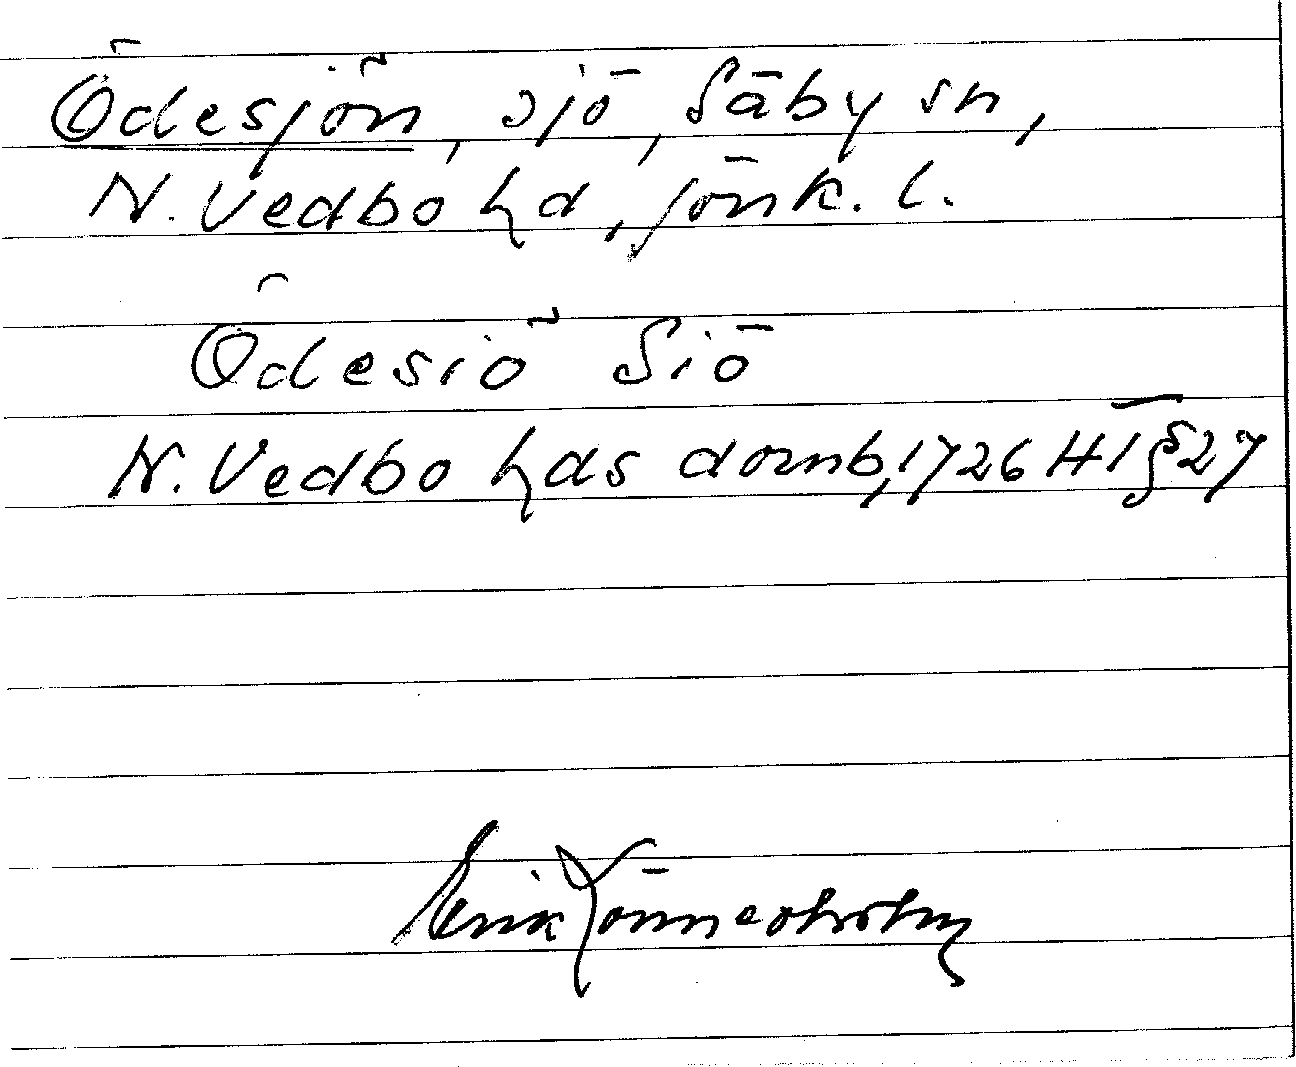 Ödesjön, sjö, Säby sn,
N. Vedbo hd, Jönk. l.
Ödesiö Siö
N. Vedbo hds domb, 1726 HT § 27
Erik